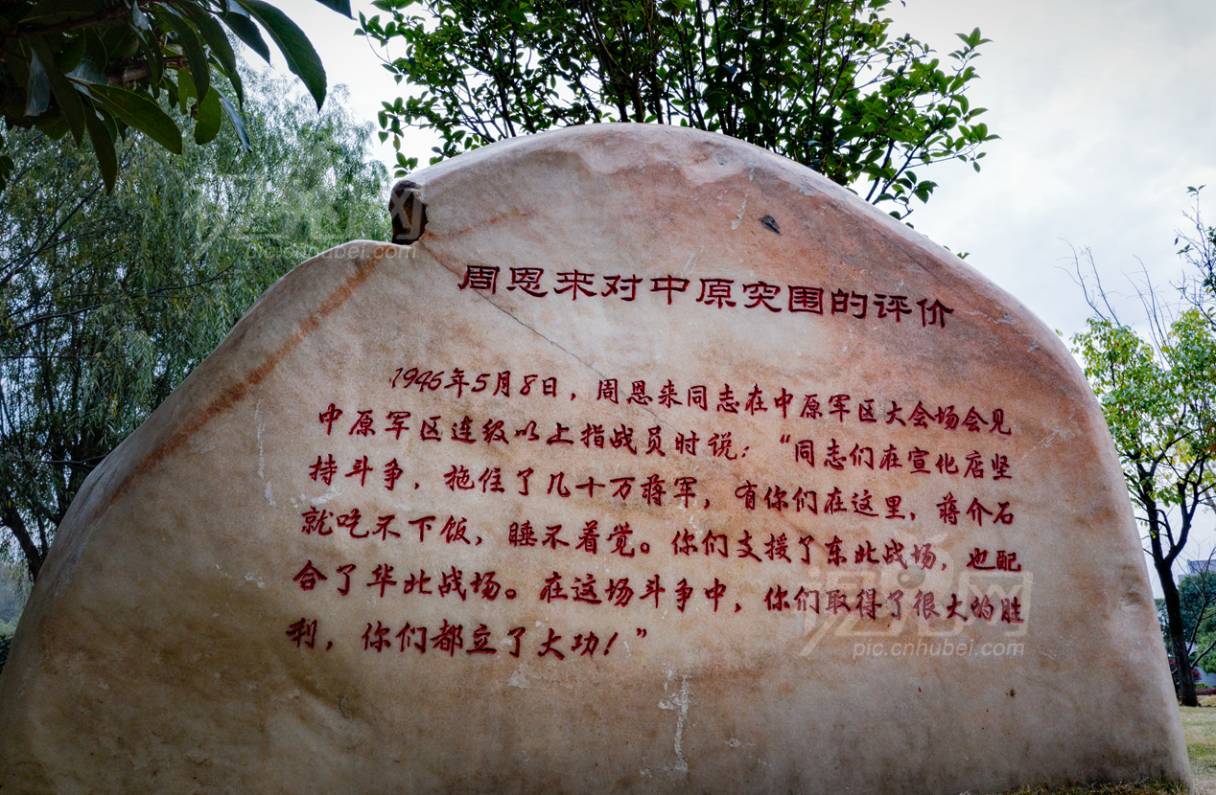 周恩来对中原突围的评价
1946年5月8日，周恩来同志在中原军区大会场会见
中原军区连级以上指战员时说：“同志们在宣化店坚
持斗争，拖住了几十万蒋军，有你们在这里，蒋介石
就吃不下饭，睡不着觉。你们支援了东北战场，也配
合了华北战场。在这场斗争中，你们取得了很大的胜
利，你们都立了大功！”
pic.cnhubei.com
pic.cnhubei.com